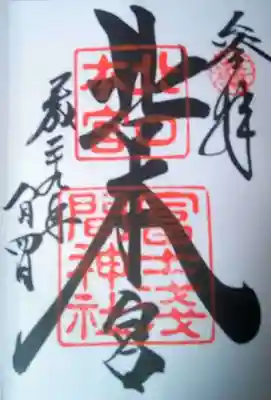 参拝
北口本宮
北口
本宮
冨士淺
間神社
平成二十九年
八月四日